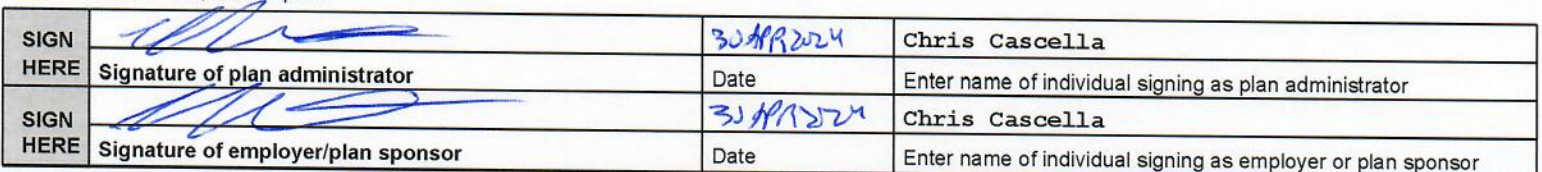 SIGN HERE 30 APR 2024 Chris Cascella
Signature of plan administrator Date Enter name of individual signing as plan administrator
SIGN HERE 30 APR 2024 Chris Cascella
Signature of employer/plan sponsor Date Enter name of individual signing as employer or plan sponsor